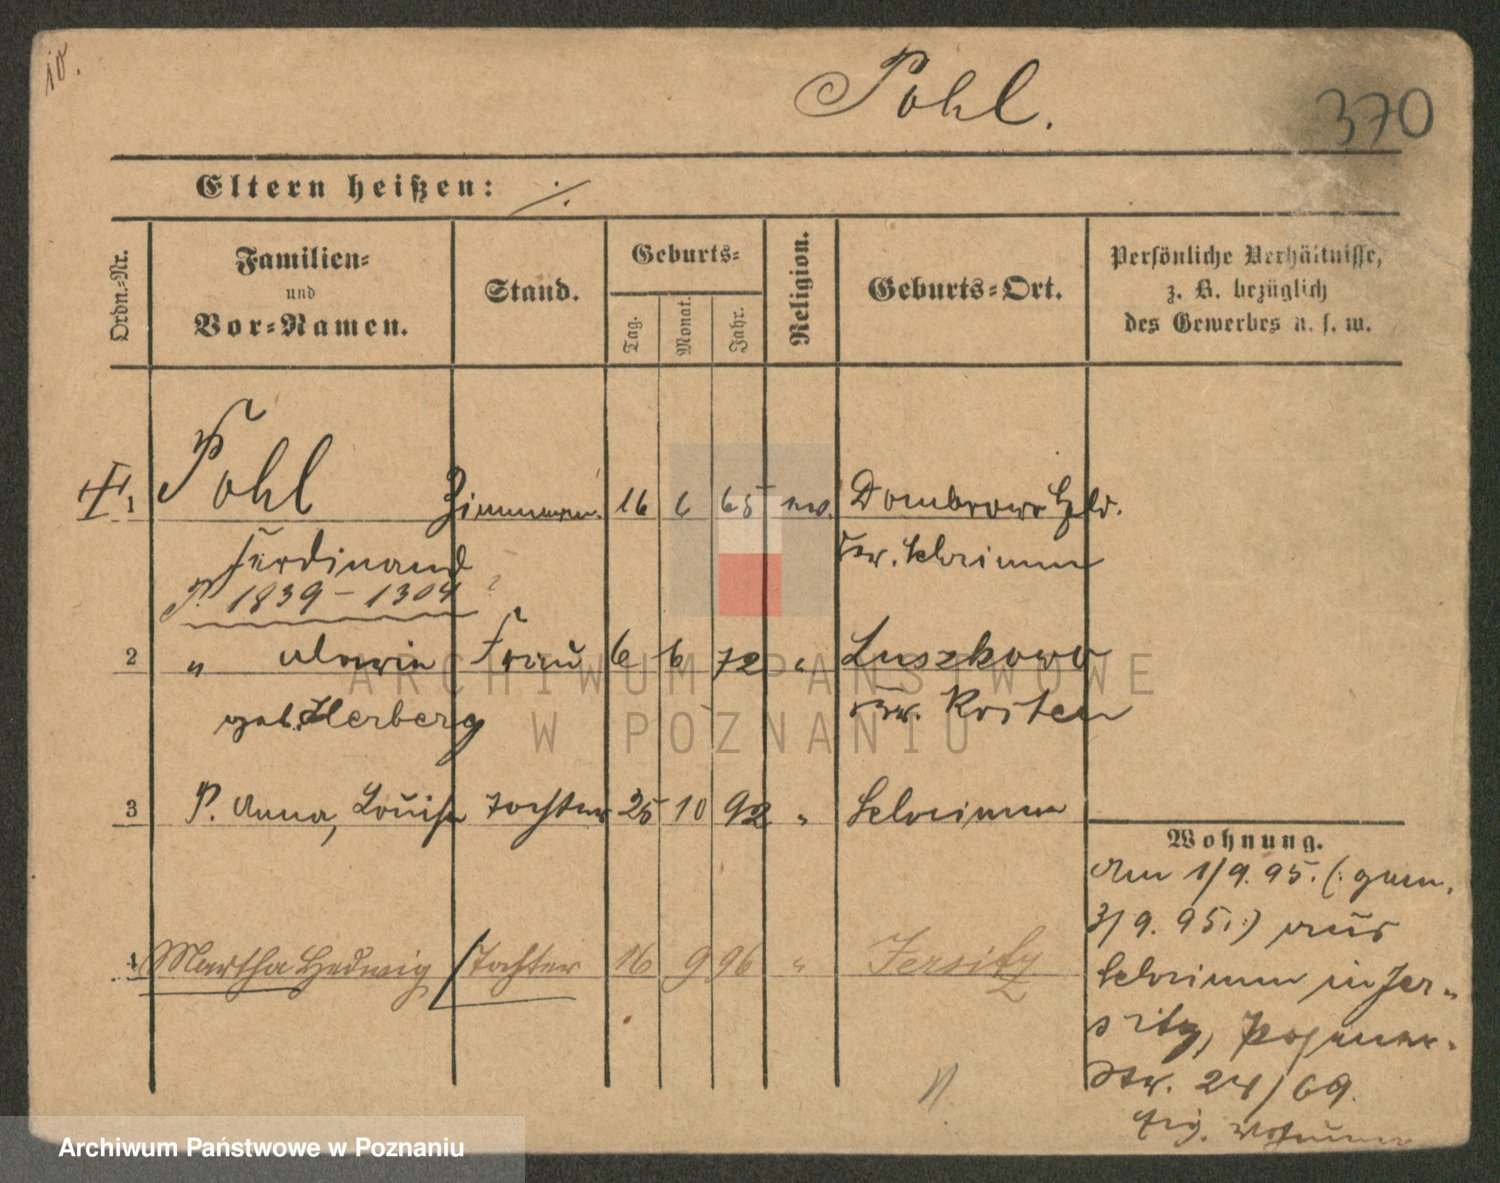 10.
Pohl.
370
Eltern heißen: ./.
Ordn.-Nr.
Familien-
und
Vor-Namen.
Stand.
Geburts-
Tag.
Monat.
Jahr.
Religion.
Geburts-Ort.
Persönliche Verhältnisse,
z. B. bezüglich
des Gewerbes u. s. w.
1 Pohl Zimmerm. 16 6 65 ev. Dombrowo Hld.
Ferdinand Kr. Schrimm
P. 1839 - 1304
2 " Maria Frau 6 6 72 " Luszkowo
geb. Herberg Kr. Kosten
3 P. Anna, Louise Tochter 25 10 92 " Schrimm
4 Martha Hedwig Tochter 16 9 96 " Jersitz
Wohnung.
Am 1/9. 95. (: gem.
3/9. 95 :) aus
Schrimm in Jer-
sitz, Posener-
Str. 24/69.
Archiwum Państwowe w Poznaniu
ARCHIWUM PAŃSTWOWE
W POZNANIU